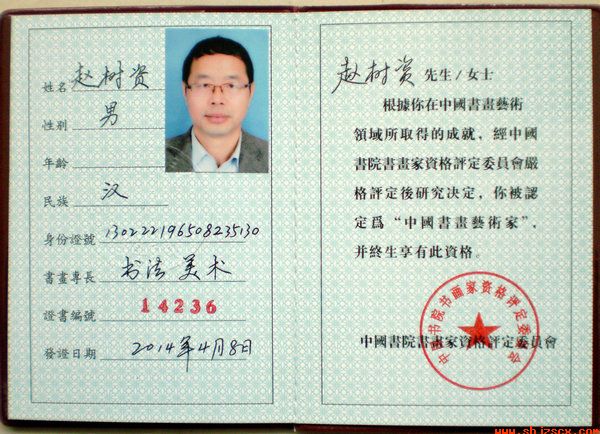 姓名 赵树资
性别 男
年齡
民族 汉
身份證號 130222196508235130
書畫專長 书法 美术
證書編號 14236
發證日期 2014年4月8日
赵树资 先生/女士
根據你在中國書畫藝術
領域所取得的成就，經中國
書院書畫家資格評定委員會嚴
格評定後研究决定，你被認
定爲“中國書畫藝術家”，
并終生享有此資格。
中国书院书画家资格评定委员会
中國書院書畫家資格評定委員會
www.shjzscx.com